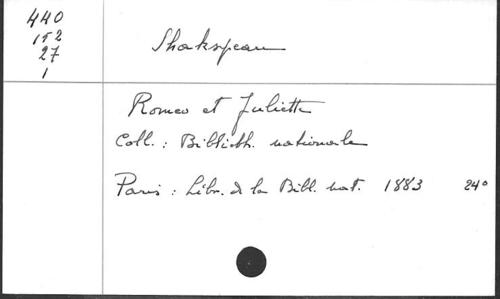 440
152
27
1
Shakspeare
Romeo et Juliette
Coll. : Biblioth. nationale
Paris : Libr. de la Bibl. nat. 1883 24°